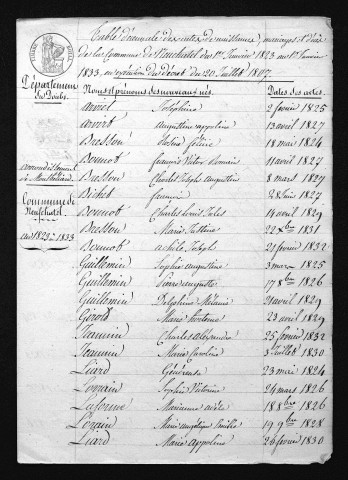 Table décennale des actes de naissances, mariages et décès
de la Commune de Neuchatel du 1er Janvier 1823 au 1er Janvier
1833, en exécution du décret du 20 Juillet 1807.
Département
du Doubs.
arrondissement
de Montbéliard
Commune de
Neufchatel.
an 1823 à 1833
Noms et prénoms des nouveaux nés. Dates des actes.
Joséphine 2 février 1825
Augustine appoline 13 avril 1827
Bresson 18 mai 1824
Bounot François Victor 11 avril 1827
Bresson Charles Joseph Augustin 8 mars 1829
Bichet 28 Juin 1827
Bounot Charles Louis Jules 14 avril 1829
Bresson Marie 22 8bre 1831
Bounot achile Joseph 21 février 1832
Guillemin Sophie augustine 3 mars 1825
Guillemin Pierre auguste 17 8bre 1826
Guillemin Delphine Mélanie 21 avril 1829
Girols Marie hortense 23 avril 1829
Jeannin Charles Alexandre 25 février 1832
Jeannin Marie Caroline 3 Juillet 1830
Liard Généreuse 23 mai 1824
Lorrain Sophie Victorine 24 mars 1826
Marianne adèle 18 8bre 1826
Lorain Marie angélique Emélie 19 9bre 1828
Liard Marie Appoline 26 février 1830